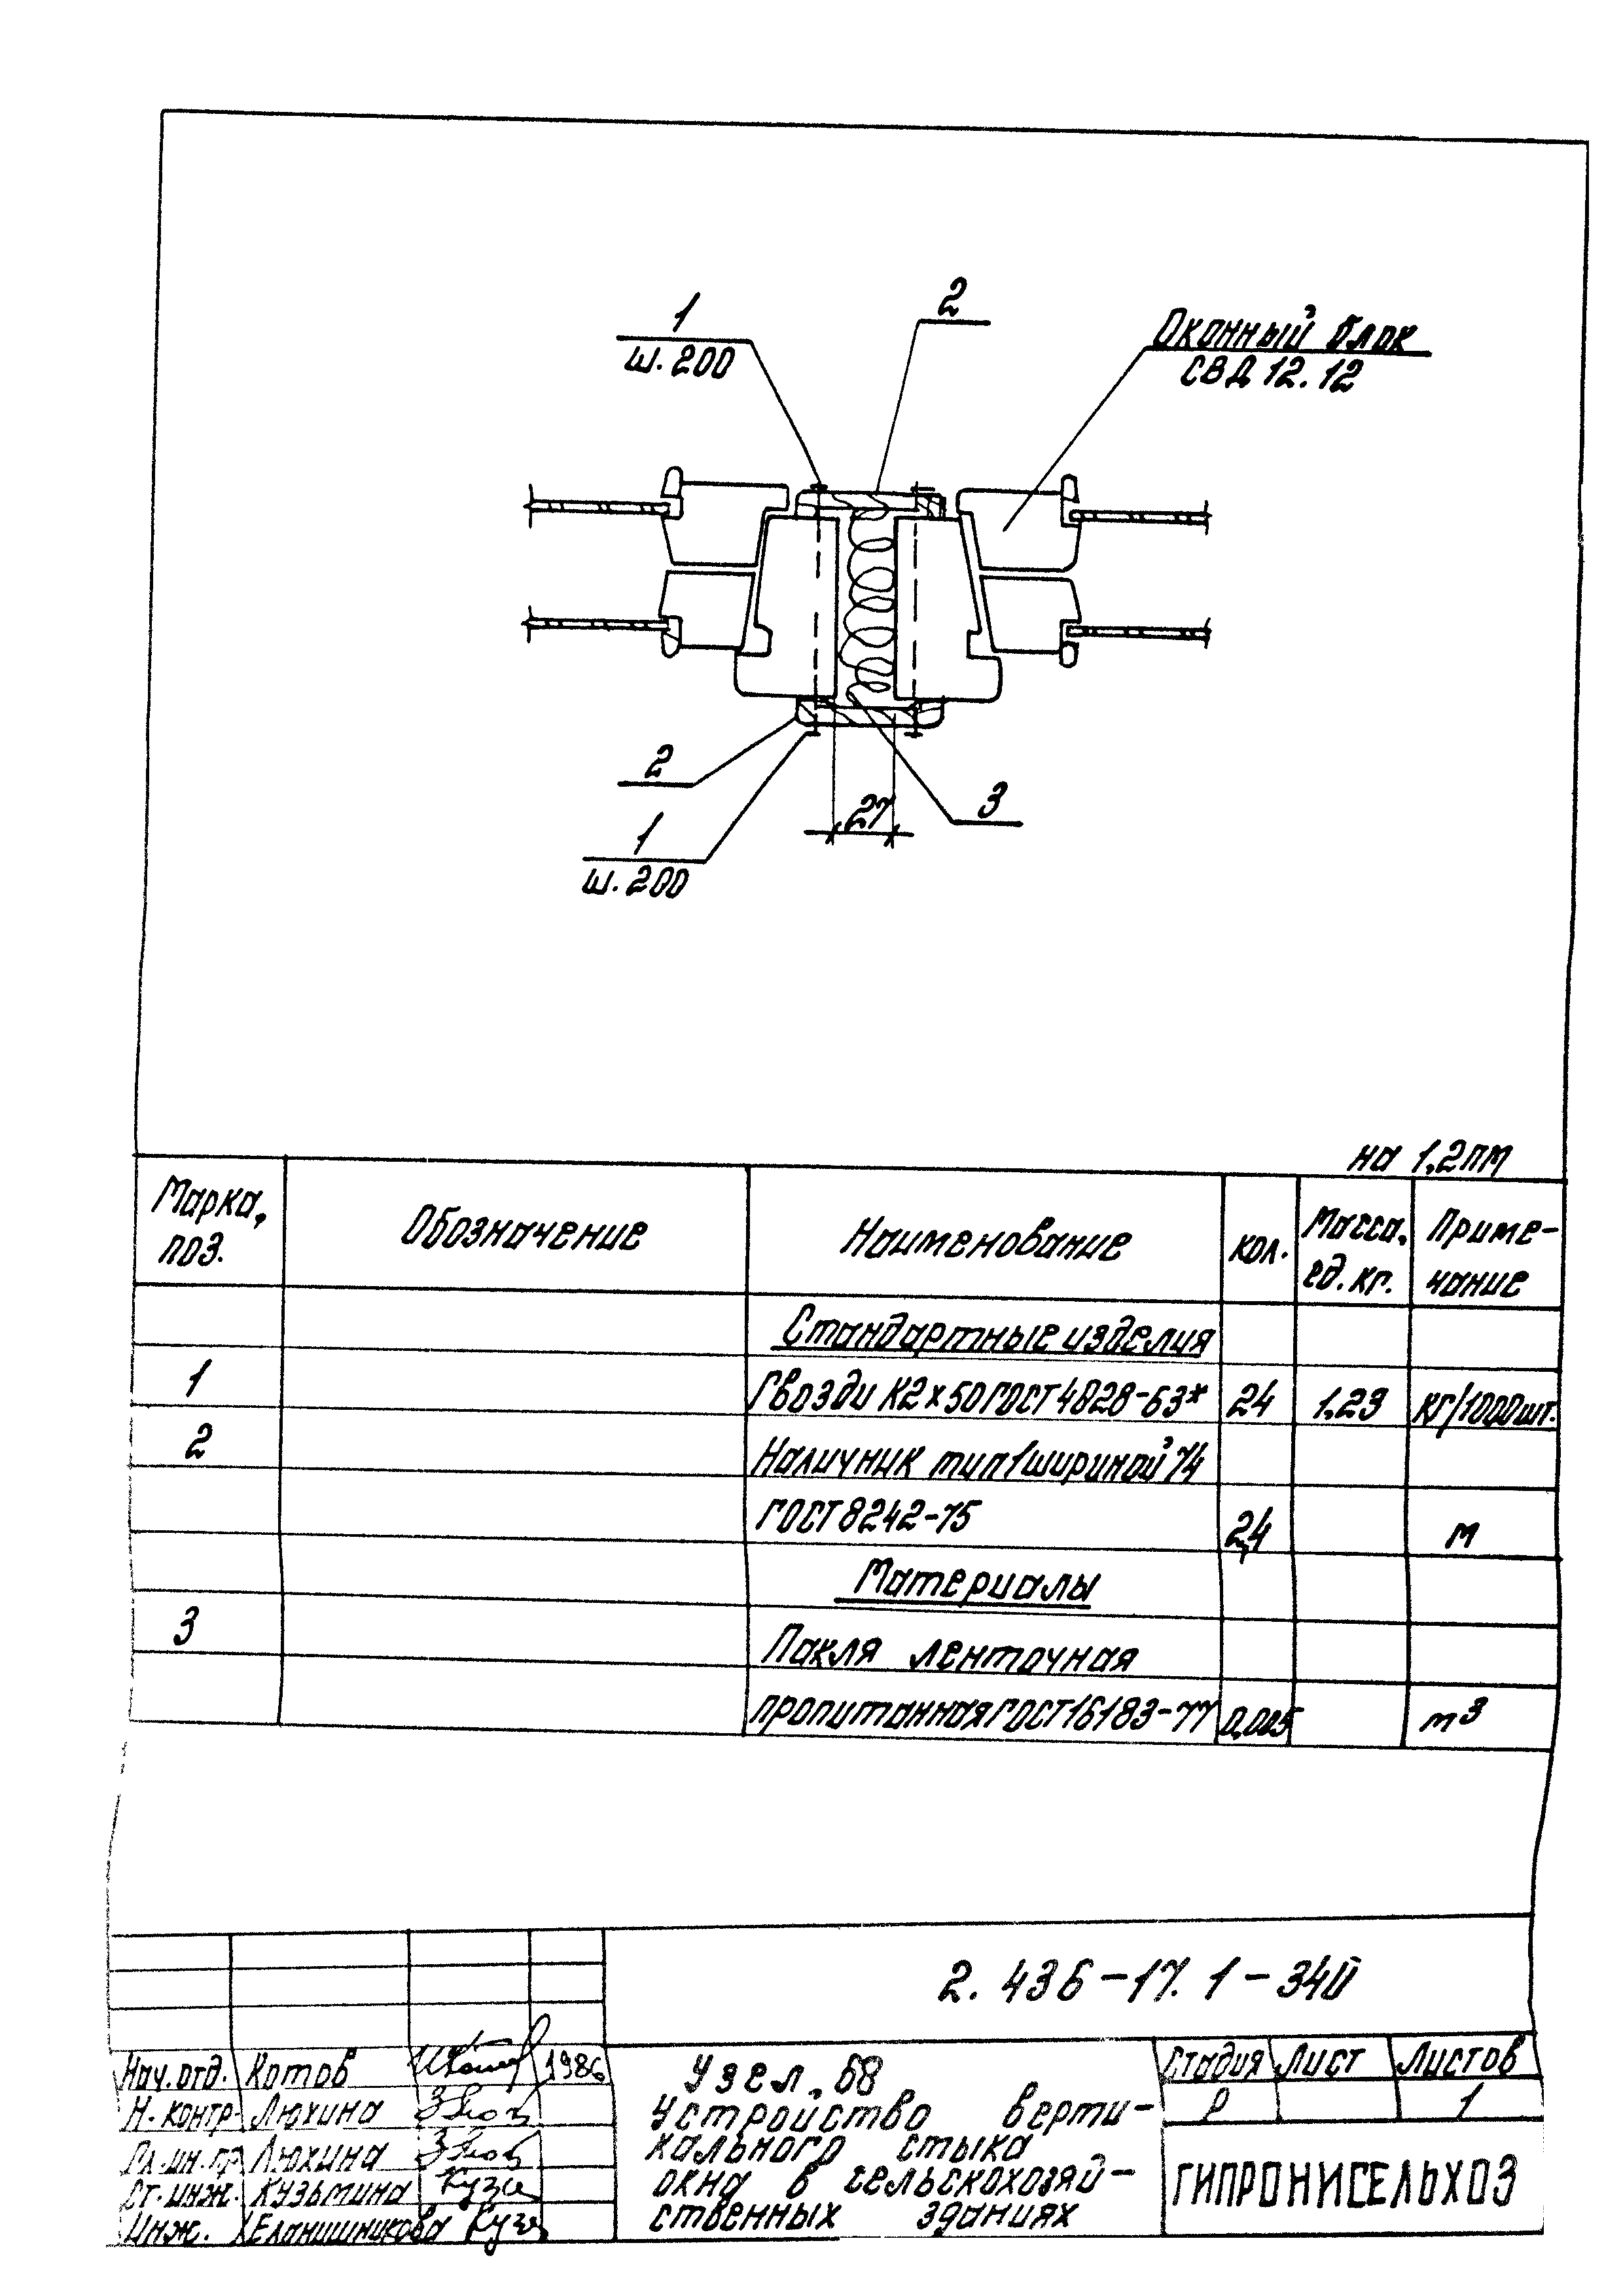 1
ш. 200
2
Оконный блок
СВД 12.12
2
1
ш. 200
27
3
на 1,2пм
Марка, поз.
Обозначение
Наименование
кол.
Масса, ед. кг.
Приме-
чание
Стандартные изделия
1 Гвозди К2х50 ГОСТ 4028-63* 24 1,23 кг/1000шт.
2 Наличник тип 1 шириной 74
ГОСТ 8242-75 2,4 м
Материалы
3 Пакля ленточная
пропитанная ГОСТ 16183-77 0,005 м3
2.436-17.1-340
Нач. отд. Котов 1986
Н. контр. Люхина
Гл. ин. пр. Люхина
Ст. инж. Кузьмина
Инж.
Узел. 68
устройство верти-
кального стыка
окна в сельскохозяй-
ственных зданиях
Стадия Лист Листов
Р 1
ГИПРОНИСЕЛЬХОЗ